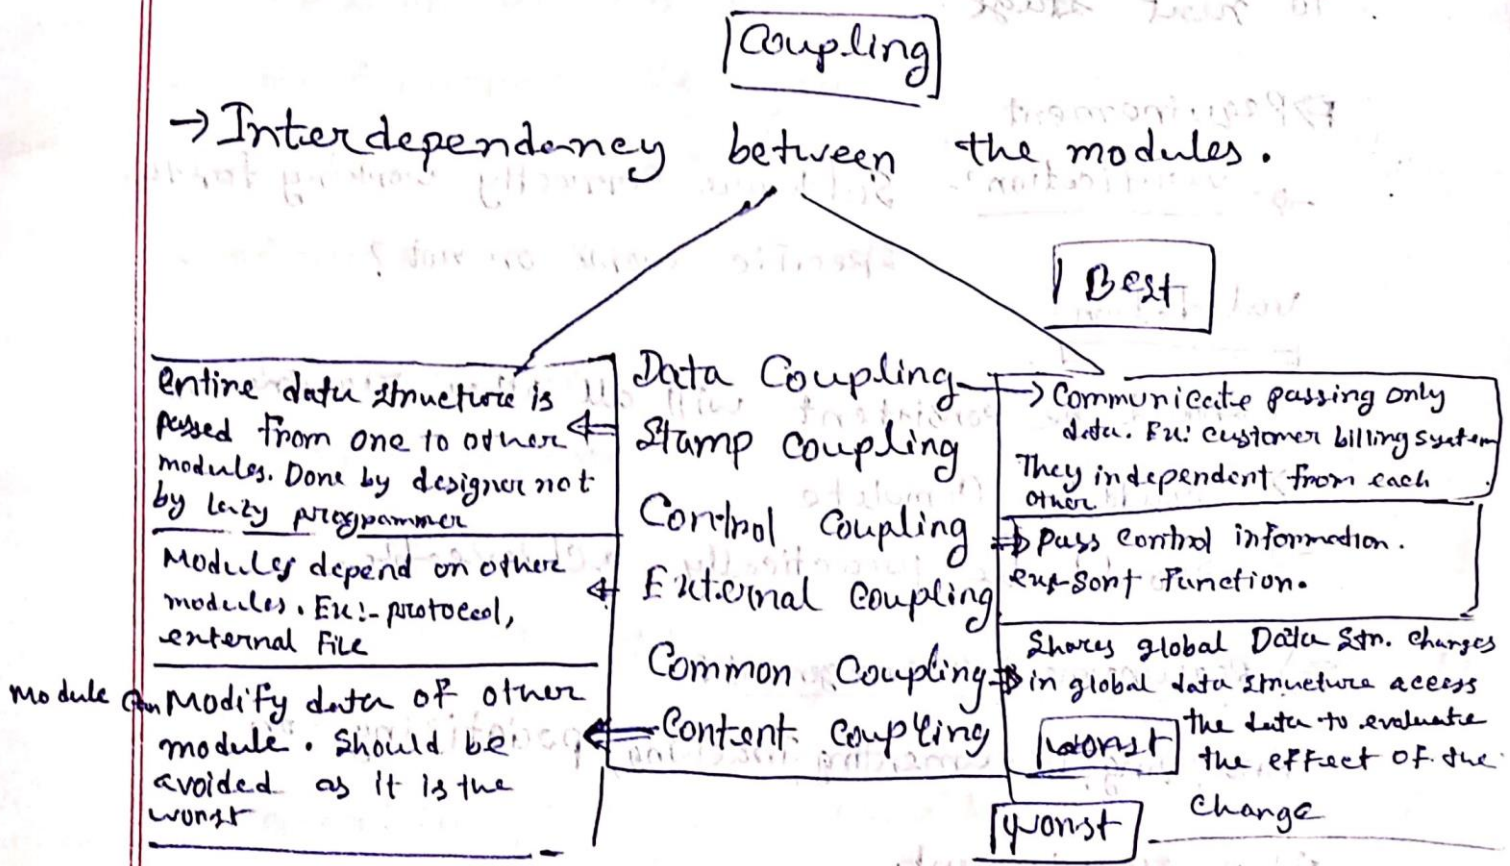 Coupling
→ Interdependency between the modules.
Best
Data Coupling
Stamp coupling
Control Coupling
External coupling
Common Coupling
Content coupling
entire data structure is
passed from one to other
modules. Done by designer not
by lazy programmer
Modules depend on other
modules. Ex:- protocol,
external File
module can Modify data of other
module. Should be
avoided as it is the
worst
→ Communicate passing only
data. Ex: customer billing system
They independent from each
other
⇒ pass control information.
ex:- sort function.
Shares global Data Str. changes
in global data structure access
the data to evaluate
the effect of the
change
worst
worst